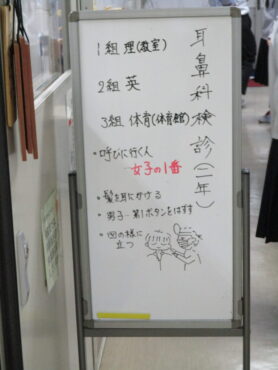 耳鼻科検診(二年)
1組 理(教室)
2組 英
3組 体育(体育館)
・呼びに行く人
女子の1番
・髪を耳にかける
・男子…第1ボタンをはずす
・図の様に
立つ